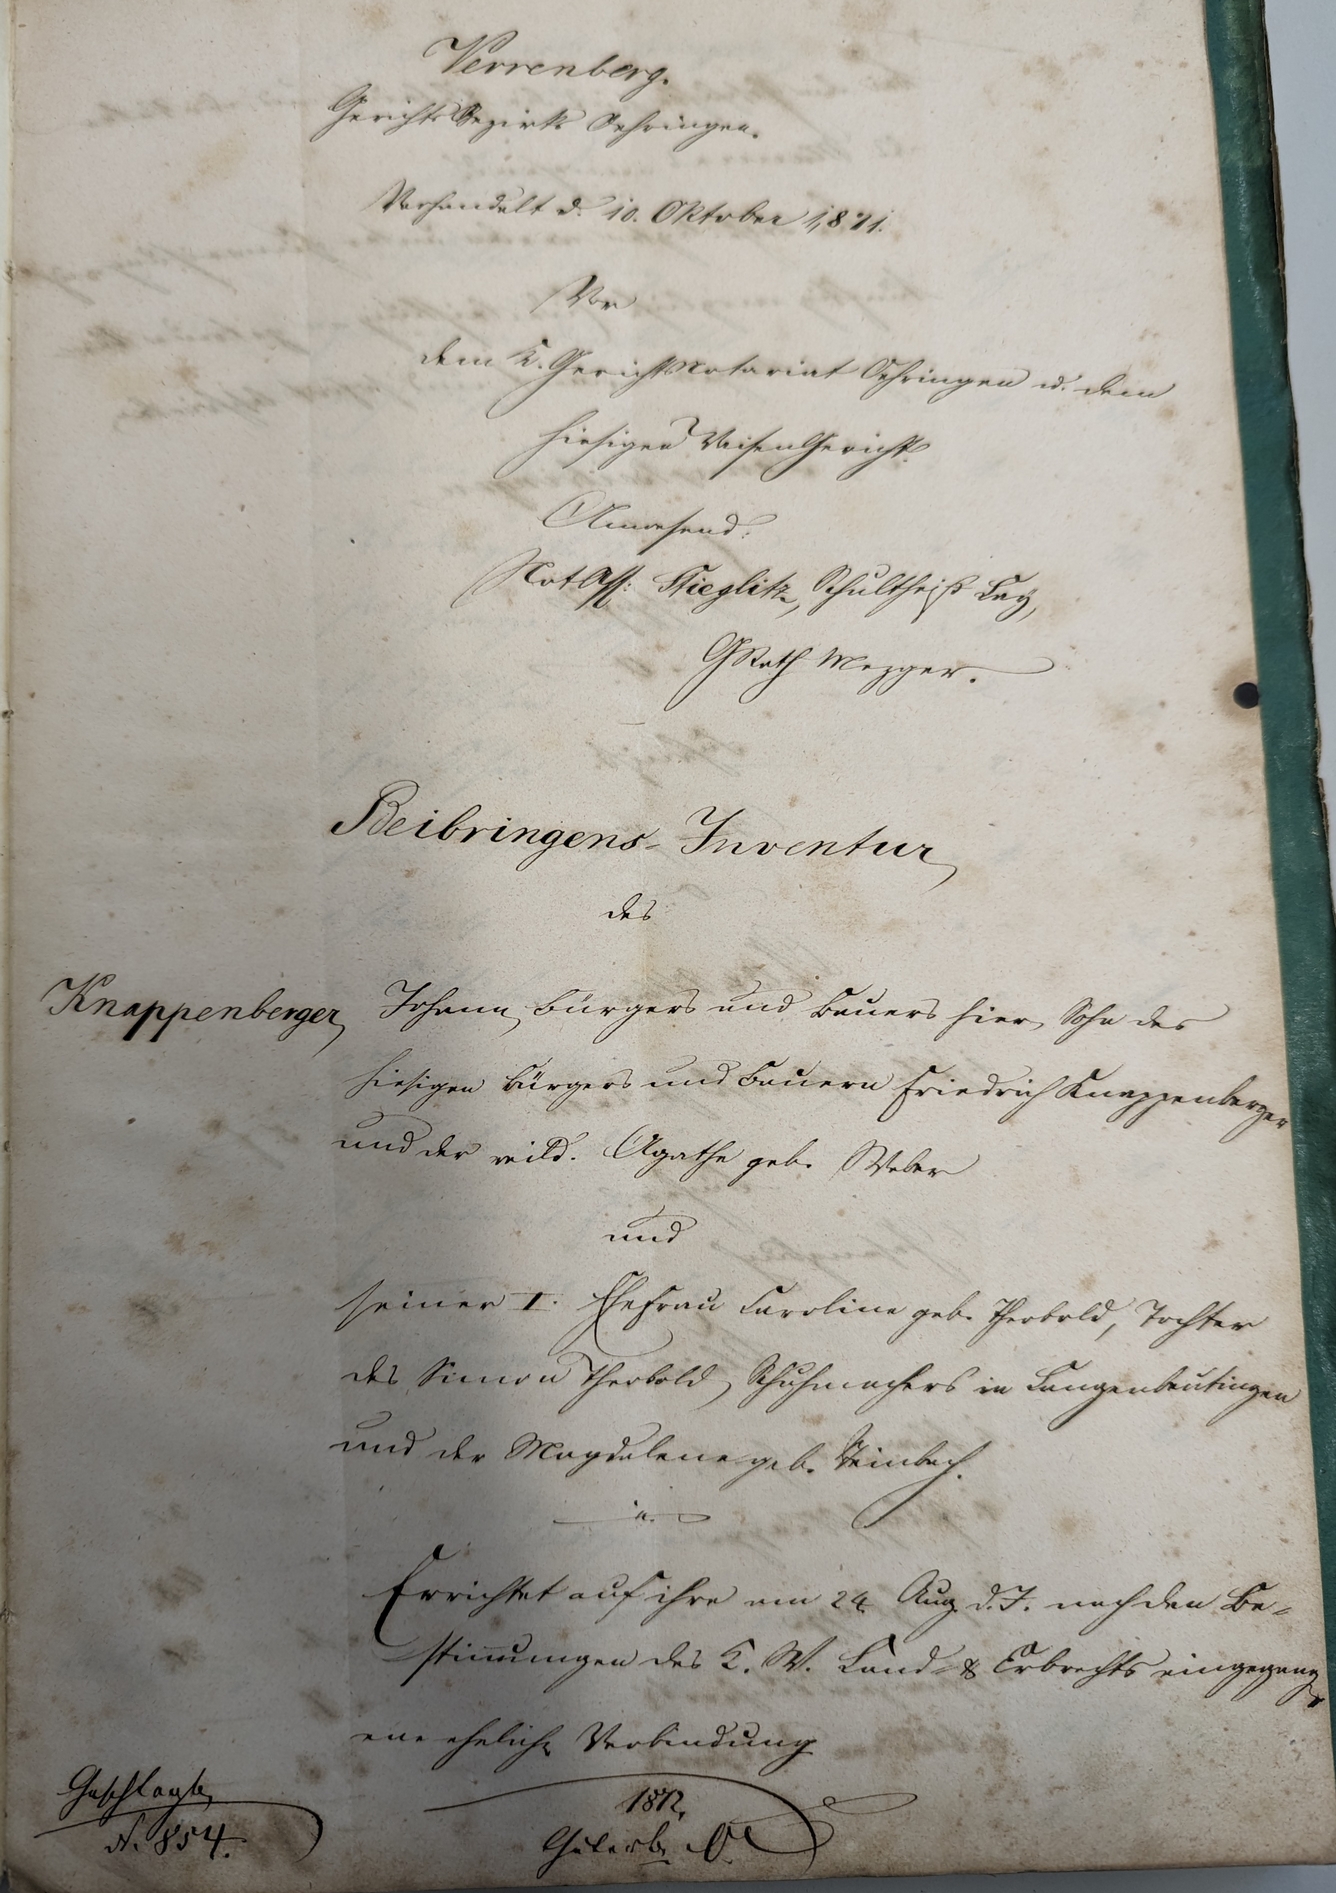 Verrenberg.
Gerichts Bezirks Oehringen.
Verhandelt d. 10. Oktober 1871.
Vor
dem K. Gerichtsnotariat Oehringen u. dem
hiesigen WaisenGericht.
Anwesend:
NotAss: Stieglitz, Schultheiß Ley,
GRath Mezger.
Beibringens-Inventur
des
Knappenberger, Johann, Bürgers und Bauers hier, Sohn des
hiesigen Bürgers und Bauern Friedrich Knappenberger
und der weild. Agathe geb. Weber
und
seiner I. Ehefrau Caroline geb. Theobold, Tochter
des Simon Theobold, Schuhmachers in Langenbeutingen
und der Magdalene geb. Steinbach.
Errichtet auf ihre am 24. Aug. d. J. nach den Be-
stimmungen des K. W. Land- & Erbrechts eingegang-
ene eheliche Verbindung
1872,
N. 854.